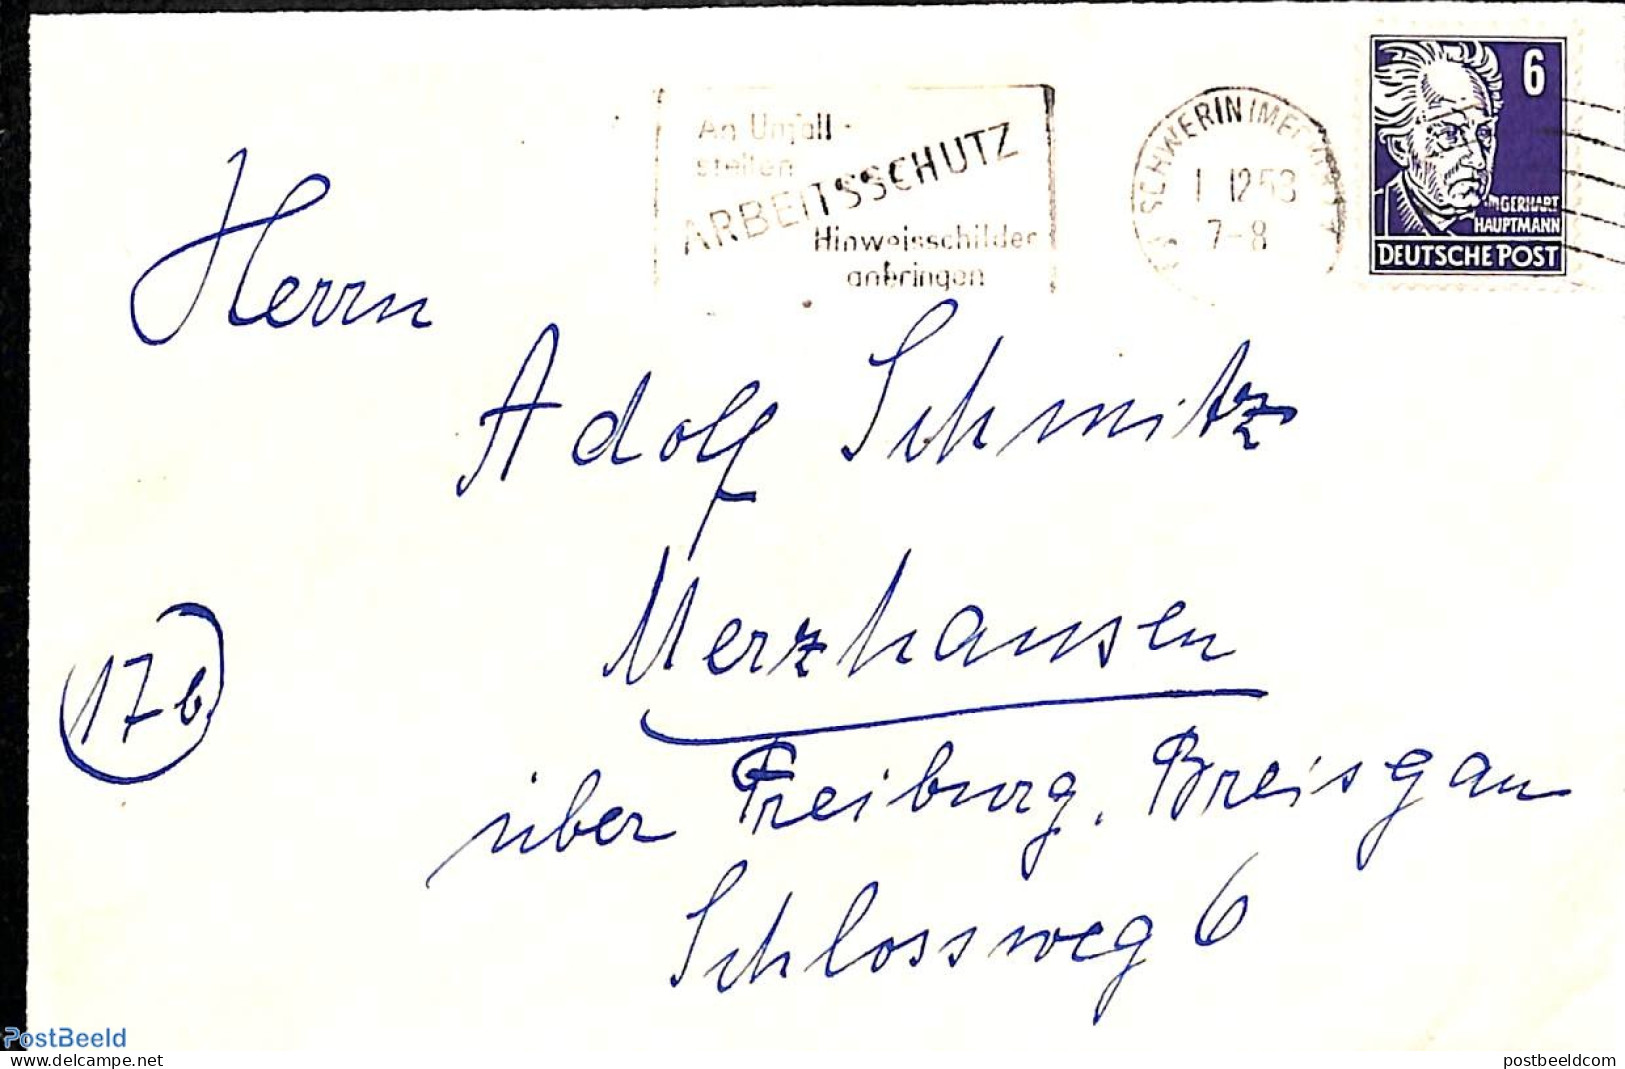 An Unfall-
stellen
ARBEITSSCHUTZ
Hinweisschilder
anbringen
SCHWERIN (MECKLB)
1 12 53
7-8
6
GERHART
HAUPTMANN
DEUTSCHE POST
Herrn
Adolf Schmitz
Merzhausen
17b
über Freiburg, Breisgau
Schlossweg 6
PostBeeld
www.delcampe.net
postbeeldcom